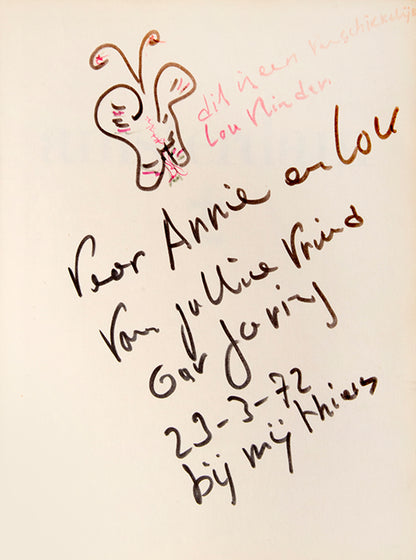 dit is een verschrikkelijke
Lou Vlinder.
Voor Annie en Lou
Van jullie Vriend
Gar
23-3-72
bij mij thuis